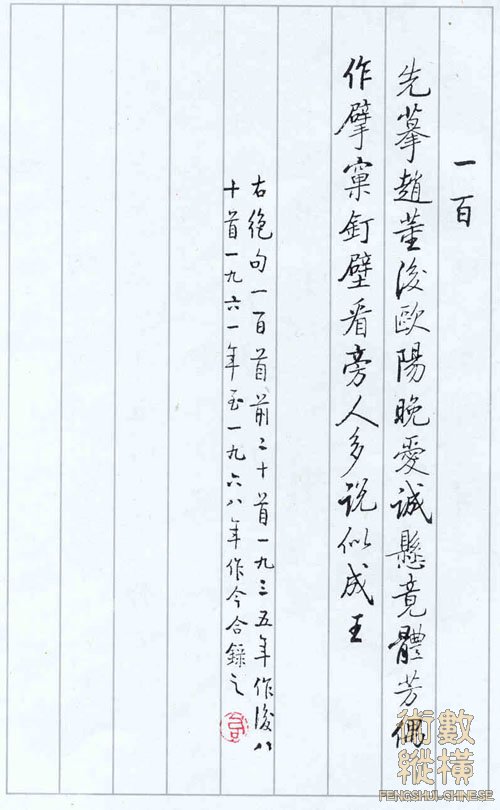 一百
先摹趙董後歐陽晚愛誠懸竟體芳偶
作擘窠釘壁看旁人多說似成王
右絕句一百首前二十首一九三五年作後八
十首一九六一年至一九六八年作今合錄之
數術
縱橫
FENGSHUI-CHINESE